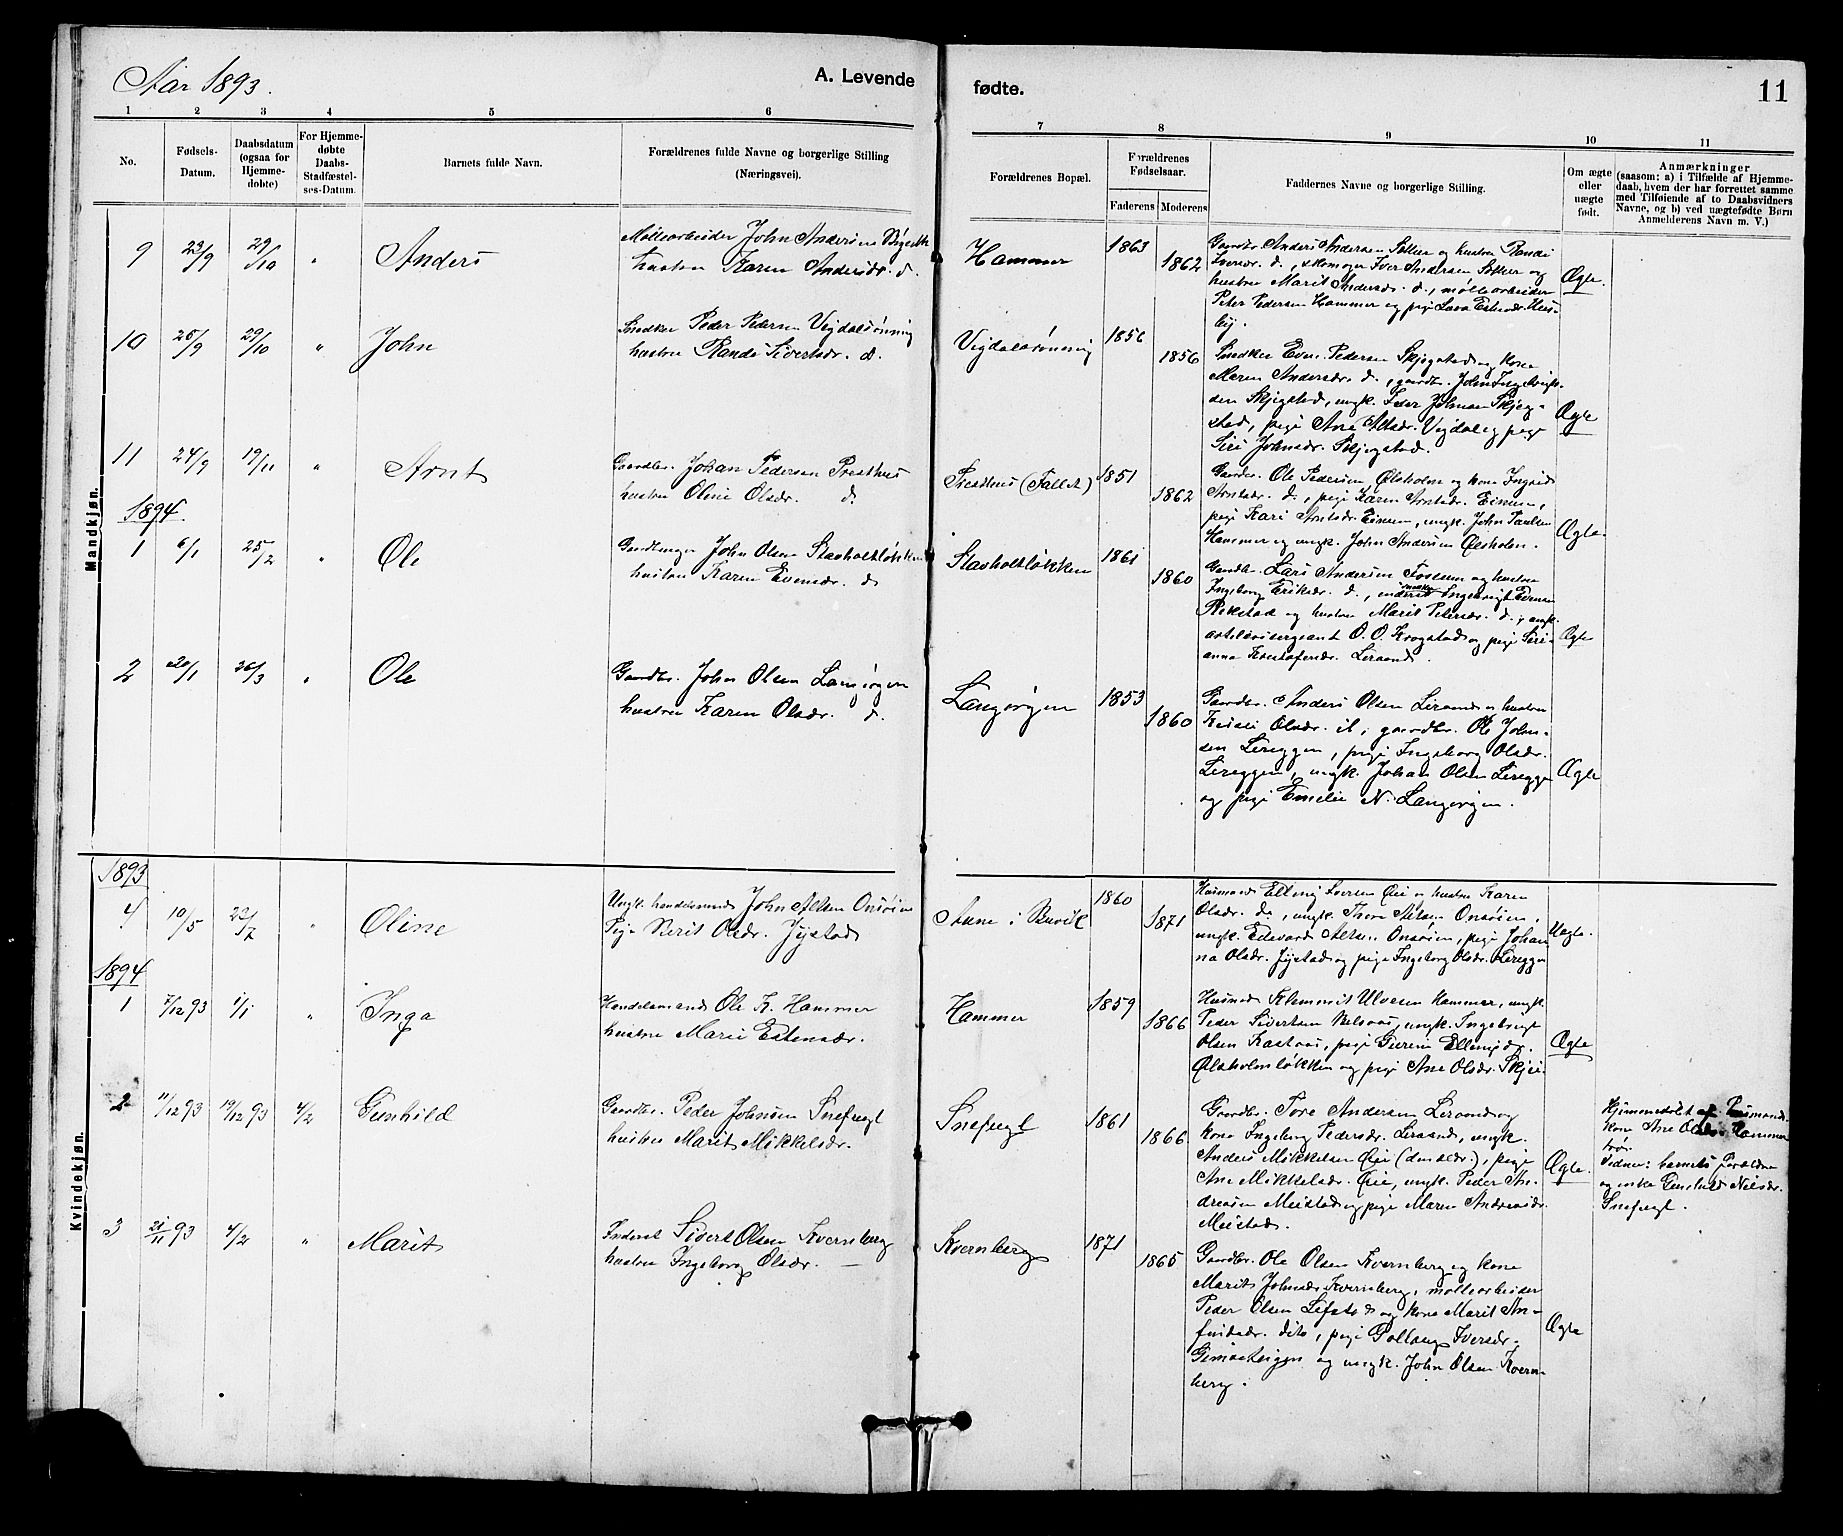 Aar 1893.
A. Levende
fødte.
11
1 2 3 4 5 6 7 8 9 10 11
No.
Fødsels-Datum.
Daabsdatum (ogsaa for Hjemme-døbte)
For Hjemme-døbte Daabs-Stadfæstel-ses-Datum.
Barnets fulde Navn.
Forældrenes fulde Navne og borgerlige Stilling
(Næringsvei).
Forældrenes Bopæl.
Forældrenes Fødselsaar.
Faderens Moderens
Faddernes Navne og borgerlige Stilling.
Om ægte eller uægte født.
Anmærkninger
(saasom: a) i Tilfælde af Hjemme-
daab, hvem der har forrettet samme
med Tilføiende af to Daabsvidners
Navne, og b) ved uægtefødte Børn
Anmelderens Navn m. V.)
Mandkjøn.
9 23/9 29/10 " Anders
Møllearbeider John Andersen
hustru Karen Andersdr. d.
Hammer 1863 1862
Gaardbr. Anders Andersen Søkker og hustru Randi
Iversdr. d., skomager Iver Andersen Søkker og
hustru Marit Andersdr. d., møllearbeider
Peter Pedersen Hammer og pige Lava Estensdr. Hus-
by.
Ægte.
10 25/9 29/10 " John
Snedker Peder Pedersen Vigdalsrønning
hustru Randi Sivertsdr. d.
Vigdalsrønning 1856 1856
Snedker Even Pedersen Skjegstad og kone
Maren Andersdr. d., gaardbr. John Ingebrigt-
sen Skjegstad, ungk. Peder Johnsen Skjeg-
stad, pige Ane Altsdr. Vigdal og pige
Siri Johnsdr. Skjegstad.
Ægte
11 24/9 19/11 " Arnt
Gaardbr. Johan Pedersen Presthus
hustru Oline Olsdr. d
Presthus (Fallet) 1851 1862
Gaardbr. Ole Pedersen Ølsholm og kone Ingrid
Arntsdr. d., pige Karen Arntsdr. Einum,
pige Kari Arntsdr. Einum, ungk. John Paulsen
Hammer og ungk. John Andersen Ølsholm.
Ægte.
1894.
1 6/1 25/2 " Ole
John Olsen Stavholtløkken
hustru Karen Evensdr. d
Stavholtløkken 1861 1860
Gaardbr. Lars Andersen Fossum og hustru
Ingeborg Eriksdr. d., Ingebrigt Evensen
Rekstad og hustru Marit Petersdr. d., ungk.
artillerisergeant O. O. Krogstad og pige Seri-
anna Kristofersdr. Leraand.
Ægte
2 20/1 26/3 " Ole
Gaardbr. John Olsen Langørgen
hustru Karen Olsdr. d.
Langørgen 1853 1860
Gaardbr. Anders Olsen Leraand og hustru
Olsdr. , gaardbr. Ole John-
sen Lereggen, pige Ingeborg Olsdr.
Lereggen, ungk. Johan Olsen Lereggen
og pige Emelie N. Langørgen.
Ægte
Kvindekjøn.
1893
4 10/5 23/7 " Oline
Ungk. handelsmand John Altsen Onsøien
Pige Berit Olsdr. Jystad
Aune i Buvik 1860 1871
Husmand Elling Iversen Øie og hustru Karen
Olsdr. d., ungk. Thore Altsen Onsøien,
ungk. Edevard Altsen Onsøien, pige Johan-
na Olsdr. Jystad og pige Ingeborg Olsdr. Lereggen
Uægte.
1894
1 7/12 93 1/1 " Inga
Handelsmand Ole K. Hammer
hustru Marie Estensdr.
Hammer 1859 1866
Husmand Klemmet Ulvesen Hammer, ungk.
Peder Sivertsen Melsaas, ungk. Ingebrigt
Olsen Kastaas, pige Gurine Ellingsdr.
Ølsholmsløkken og pige Ane Olsdr. Skjei.
Ægte
2 11/12 93 19/12 93 4/2 Gunhild
Gaardbr. Peder Johnsen Snefugl
hustru Marit Mikkelsdr.
Snefugl 1861 1866
Gaardbr. Tore Andersen Leraand og
kone Ingeborg Pedersdr. Leraand, ungk.
Anders Mikkelsen Øie (den ældr.), pige
Ane Mikkelsdr. Øie, ungk. Peder An-
dreasen Meistad og pige Maren Andreasdr.
Meistad.
Ægte.
Hjemmedøbt af Husmands-
kone Ane Olsdr. Hammer
Vidner: barnets forældre
og enke Gunhild Nilsdr.
Snefugl.
3 21/11 93 4/2 " Marit
Inderst Sivert Olsen Kvernberg
hustru Ingeborg Olsdr. —
Kvernberg 1871 1865
Gaardbr. Ole Olsen Kvernberg og kone
Marit Johnsdr. Kvernberg, møllearbeider
Peder Olsen Lefstad og kone Marit An-
findsdr. dito, pige Gollaug Iversdr.
Gimseteigen og ungk. John Olsen Kvern-
berg.
Ægte